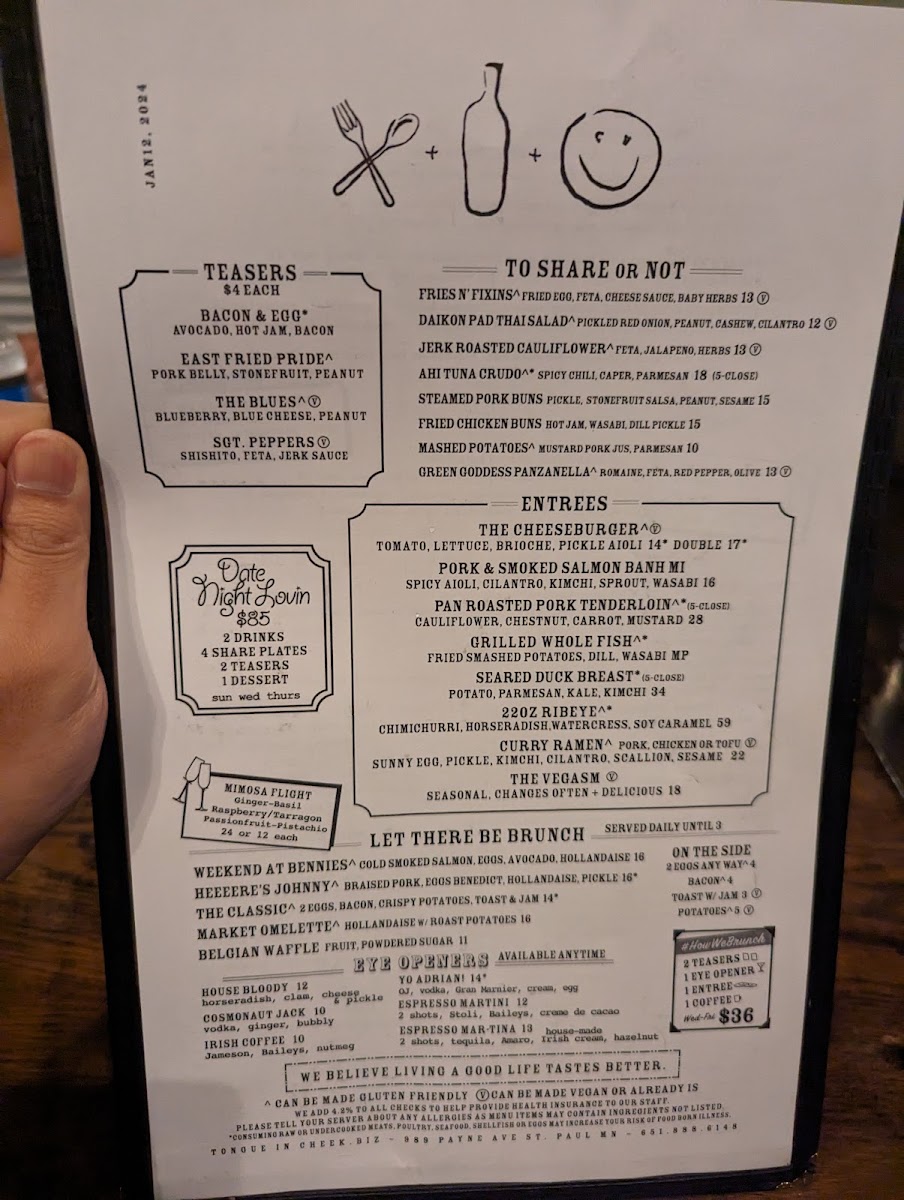 JAN12, 2024
+ +
TEASERS
$4 EACH
BACON & EGG*
AVOCADO, HOT JAM, BACON
EAST FRIED PRIDE^
PORK BELLY, STONEFRUIT, PEANUT
THE BLUES^ Ⓥ
BLUEBERRY, BLUE CHEESE, PEANUT
SGT. PEPPERS Ⓥ
SHISHITO, FETA, JERK SAUCE
TO SHARE OR NOT
FRIES N' FIXINS^ FRIED EGG, FETA, CHEESE SAUCE, BABY HERBS 13 Ⓥ
DAIKON PAD THAI SALAD^ PICKLED RED ONION, PEANUT, CASHEW, CILANTRO 12 Ⓥ
JERK ROASTED CAULIFLOWER^ FETA, JALAPENO, HERBS 13 Ⓥ
AHI TUNA CRUDO^* SPICY CHILI, CAPER, PARMESAN 18 (5-CLOSE)
STEAMED PORK BUNS PICKLE, STONEFRUIT SALSA, PEANUT, SESAME 15
FRIED CHICKEN BUNS HOT JAM, WASABI, DILL PICKLE 15
MASHED POTATOES^ MUSTARD PORK JUS, PARMESAN 10
GREEN GODDESS PANZANELLA^ ROMAINE, FETA, RED PEPPER, OLIVE 13 Ⓥ
ENTREES
THE CHEESEBURGER^ Ⓥ
TOMATO, LETTUCE, BRIOCHE, PICKLE AIOLI 14* DOUBLE 17*
PORK & SMOKED SALMON BANH MI
SPICY AIOLI, CILANTRO, KIMCHI, SPROUT, WASABI 16
PAN ROASTED PORK TENDERLOIN^* (5-CLOSE)
CAULIFLOWER, CHESTNUT, CARROT, MUSTARD 28
GRILLED WHOLE FISH^*
FRIED SMASHED POTATOES, DILL, WASABI MP
SEARED DUCK BREAST* (5-CLOSE)
POTATO, PARMESAN, KALE, KIMCHI 34
22OZ RIBEYE^*
CHIMICHURRI, HORSERADISH, WATERCRESS, SOY CARAMEL 59
CURRY RAMEN^ PORK, CHICKEN OR TOFU Ⓥ
SUNNY EGG, PICKLE, KIMCHI, CILANTRO, SCALLION, SESAME 22
THE VEGASM Ⓥ
SEASONAL, CHANGES OFTEN + DELICIOUS 18
Date
Night Lovin
$85
2 DRINKS
4 SHARE PLATES
2 TEASERS
1 DESSERT
sun wed thurs
MIMOSA FLIGHT
Ginger-Basil
Raspberry/Tarragon
Passionfruit-Pistachio
24 or 12 each
LET THERE BE BRUNCH SERVED DAILY UNTIL 3
WEEKEND AT BENNIES^ COLD SMOKED SALMON, EGGS, AVOCADO, HOLLANDAISE 16
HEEEERE'S JOHNNY^ BRAISED PORK, EGGS BENEDICT, HOLLANDAISE, PICKLE 16*
THE CLASSIC^ 2 EGGS, BACON, CRISPY POTATOES, TOAST & JAM 14*
MARKET OMELETTE^ HOLLANDAISE W/ ROAST POTATOES 16
BELGIAN WAFFLE FRUIT, POWDERED SUGAR 11
ON THE SIDE
2 EGGS ANY WAY^ 4
BACON^ 4
TOAST W/ JAM 3 Ⓥ
POTATOES^ 5 Ⓥ
EYE OPENERS AVAILABLE ANYTIME
HOUSE BLOODY 12
horseradish, clam, cheese & pickle
COSMONAUT JACK 10
vodka, ginger, bubbly
IRISH COFFEE 10
Jameson, Baileys, nutmeg
YO ADRIAN! 14*
OJ, vodka, Gran Marnier, cream, egg
ESPRESSO MARTINI 12
2 shots, Stoli, Baileys, creme de cacao
ESPRESSO MAR-TINA 13 house-made
2 shots, tequila, Amaro, Irish cream, hazelnut
#HowWeBrunch
2 TEASERS
1 EYE OPENER
1 ENTREE
1 COFFEE
Wed-Fri $36
WE BELIEVE LIVING A GOOD LIFE TASTES BETTER.
^ CAN BE MADE GLUTEN FRIENDLY Ⓥ CAN BE MADE VEGAN OR ALREADY IS
WE ADD 4.2% TO ALL CHECKS TO HELP PROVIDE HEALTH INSURANCE TO OUR STAFF.
PLEASE TELL YOUR SERVER ABOUT ANY ALLERGIES AS MENU ITEMS MAY CONTAIN INGREDIENTS NOT LISTED.
*CONSUMING RAW OR UNDERCOOKED MEATS, POULTRY, SEAFOOD, SHELLFISH OR EGGS MAY INCREASE YOUR RISK OF FOOD BORN ILLNESS.
TONGUE IN CHEEK.BIZ - 989 PAYNE AVE ST. PAUL MN - 651.888.6148